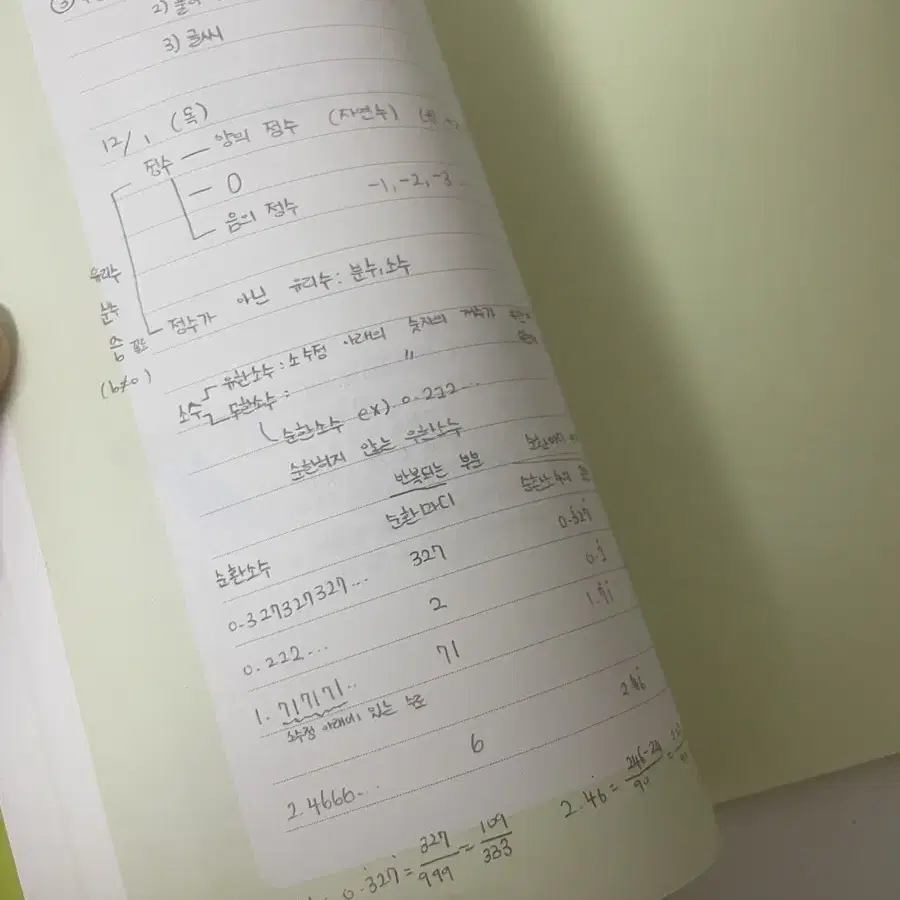 ③
2) 풀이
3) 글씨
12/1 (목)
정수 — 양의 정수 (자연수)
— 0
음의 정수 -1, -2, -3 ..
유리수
분수
(b≠0)
정수가 아닌 유리수 : 분수, 소수
소수 유한소수 : 소수점 아래의 숫자의 개수가
무한소수 : 〃
순환소수 ex) 0.222...
순환하지 않는 무한소수
반복되는 부분
순환소수 순환마디
0.327327327... 327 0.3̇27̇
0.222... 2
1.717171.. 71
소수점 아래에 있는 수로
2.4666... 6 2.46̇
0.3̇27̇ = 327/999 = 109/333
2.46̇ = 246-24/90 =